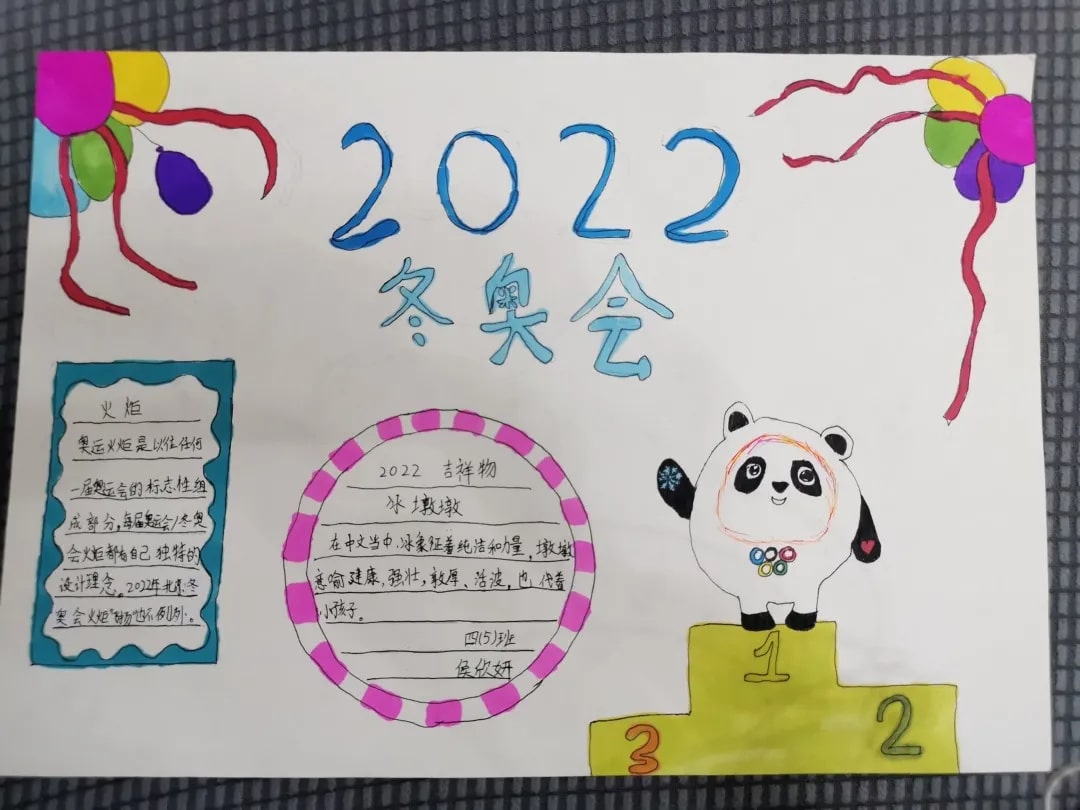 2022
冬奥会
火炬
奥运火炬是以往任何
一届奥运会的标志性组
成部分,每届奥运会/冬奥
会火炬都有自己独特的
设计理念。2022年北京冬
奥会火炬"飞扬"也不例外。
2022 吉祥物
冰墩墩
在中文当中,冰象征着纯洁和力量,墩墩
意喻健康,强壮,敦厚、活波,也代着
小孩子。
四(5)班
侯欣妍
1
2
3